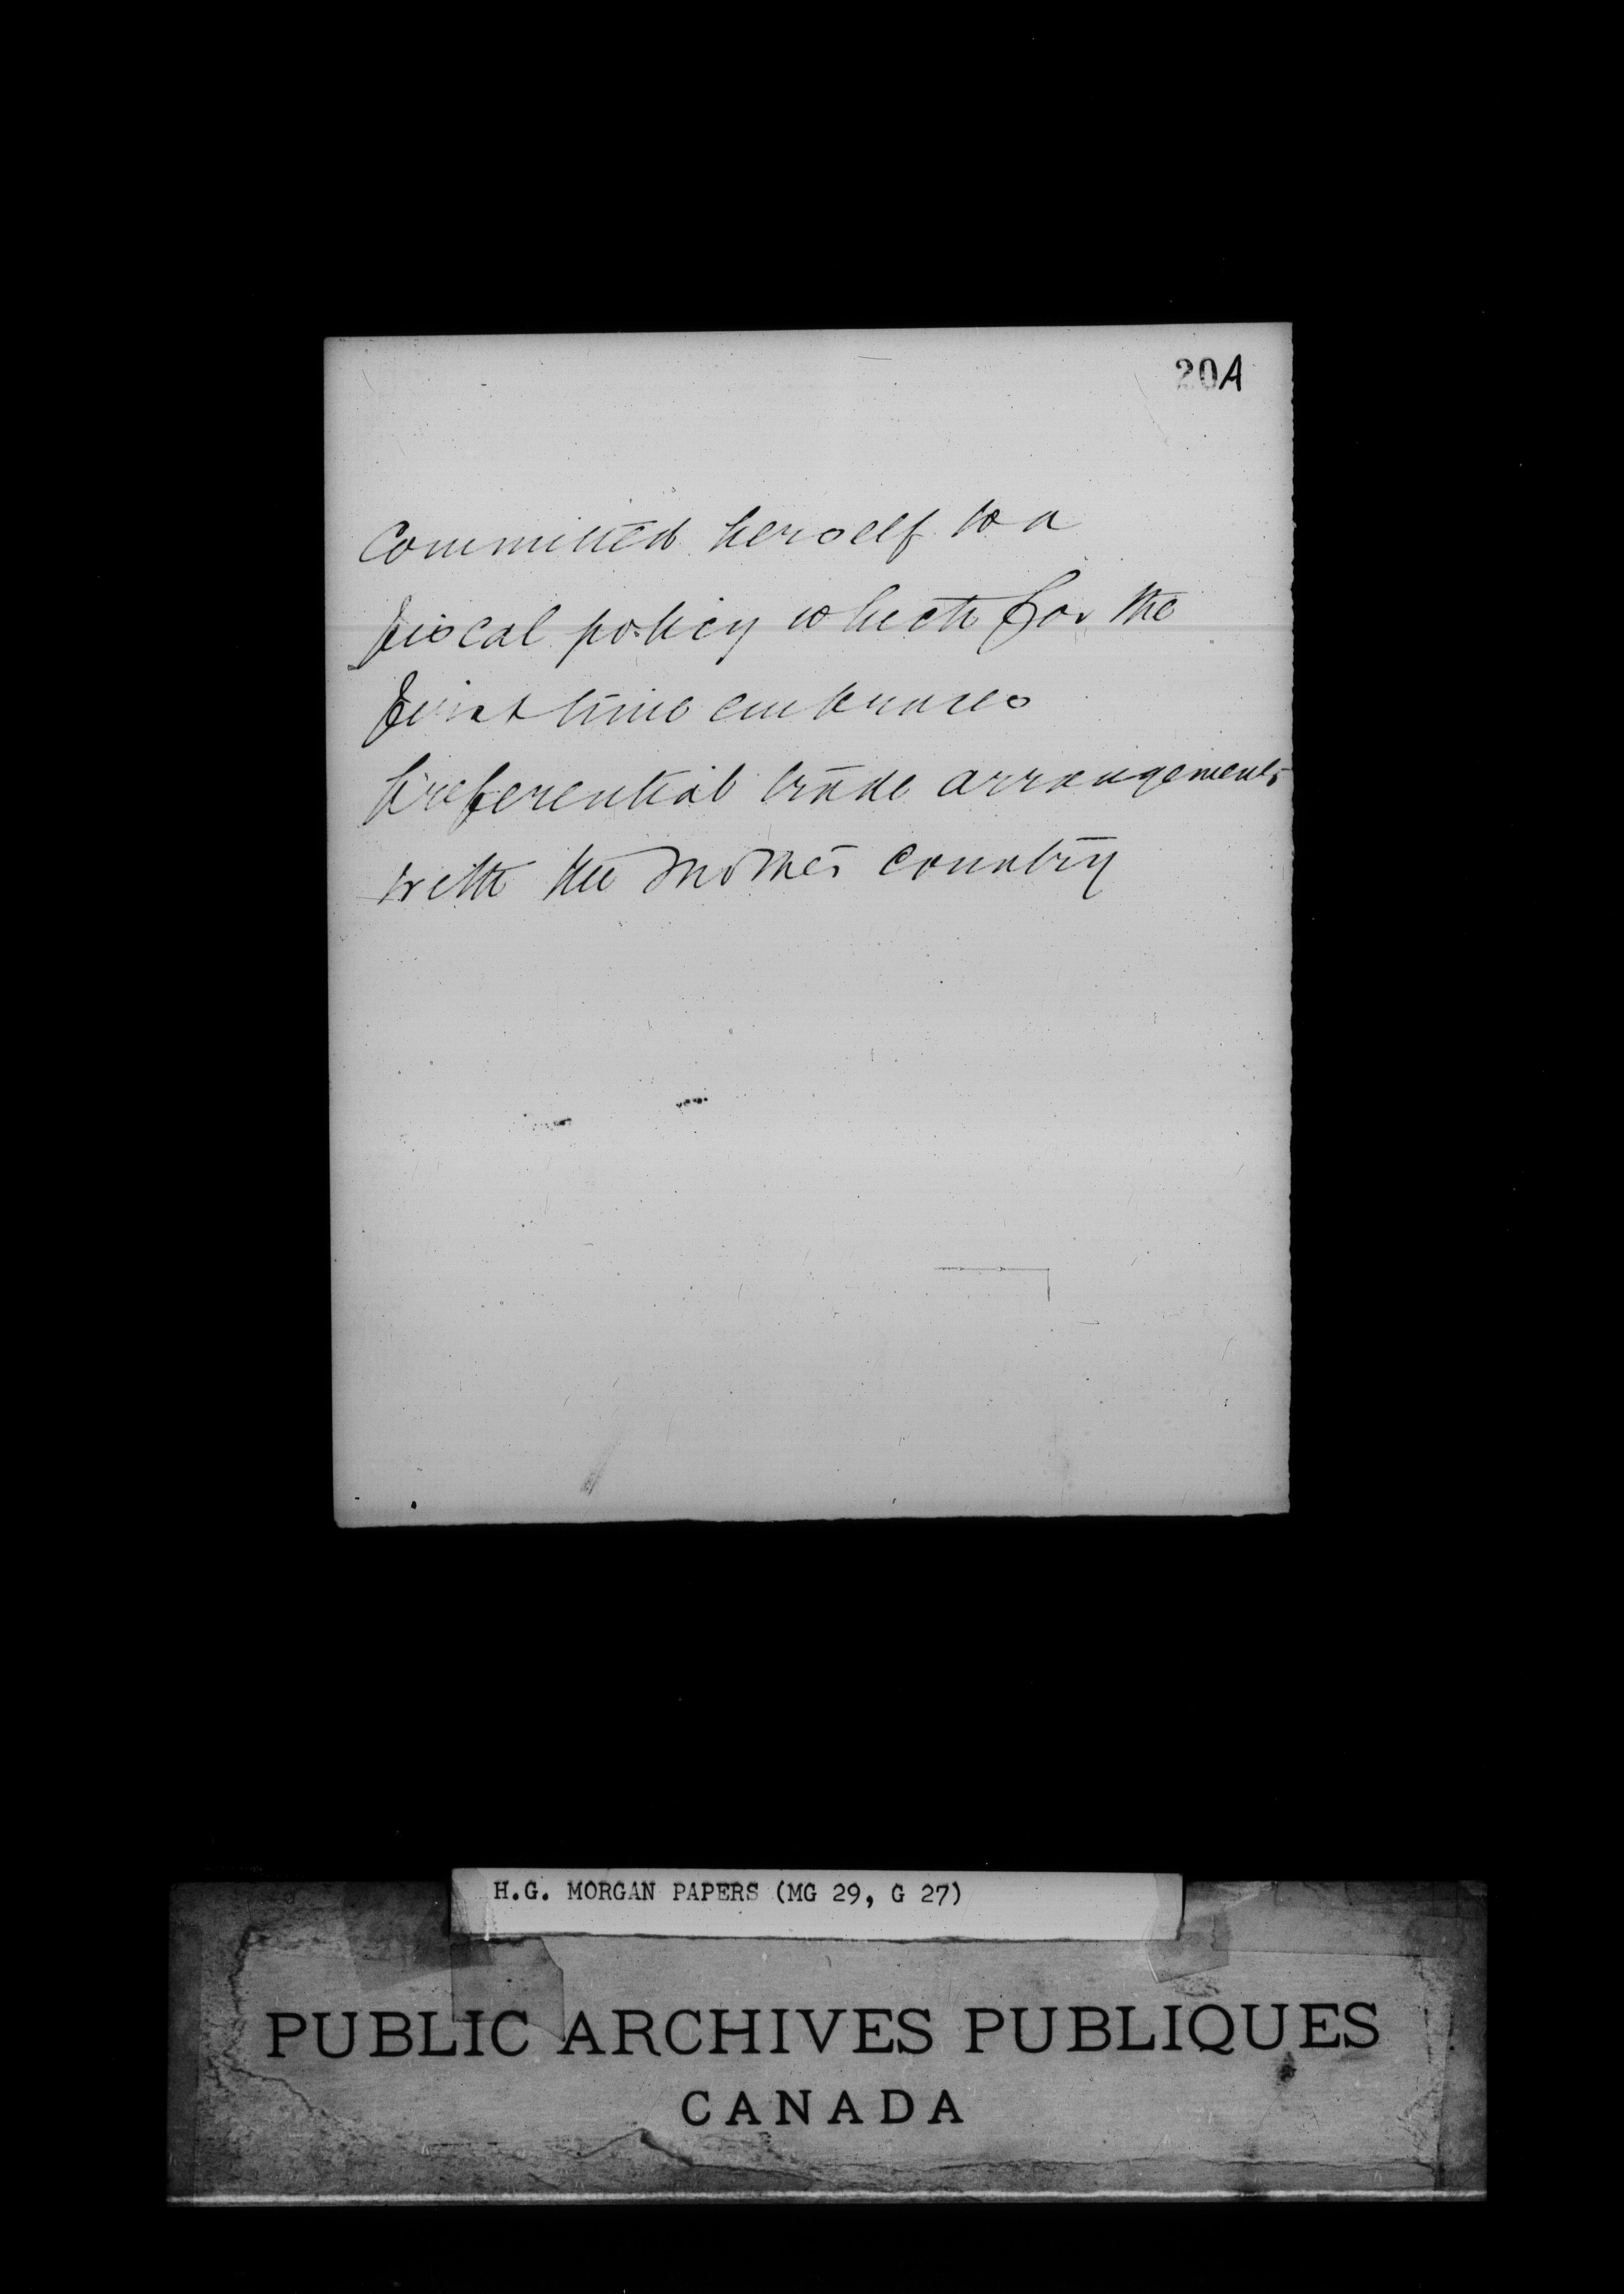 20A
Committed herself to a
fiscal policy which for the
first time embraces
preferential trade arrangements
with the Mother Country
H.G. MORGAN PAPERS (MG 29, G 27)
PUBLIC ARCHIVES PUBLIQUES
CANADA